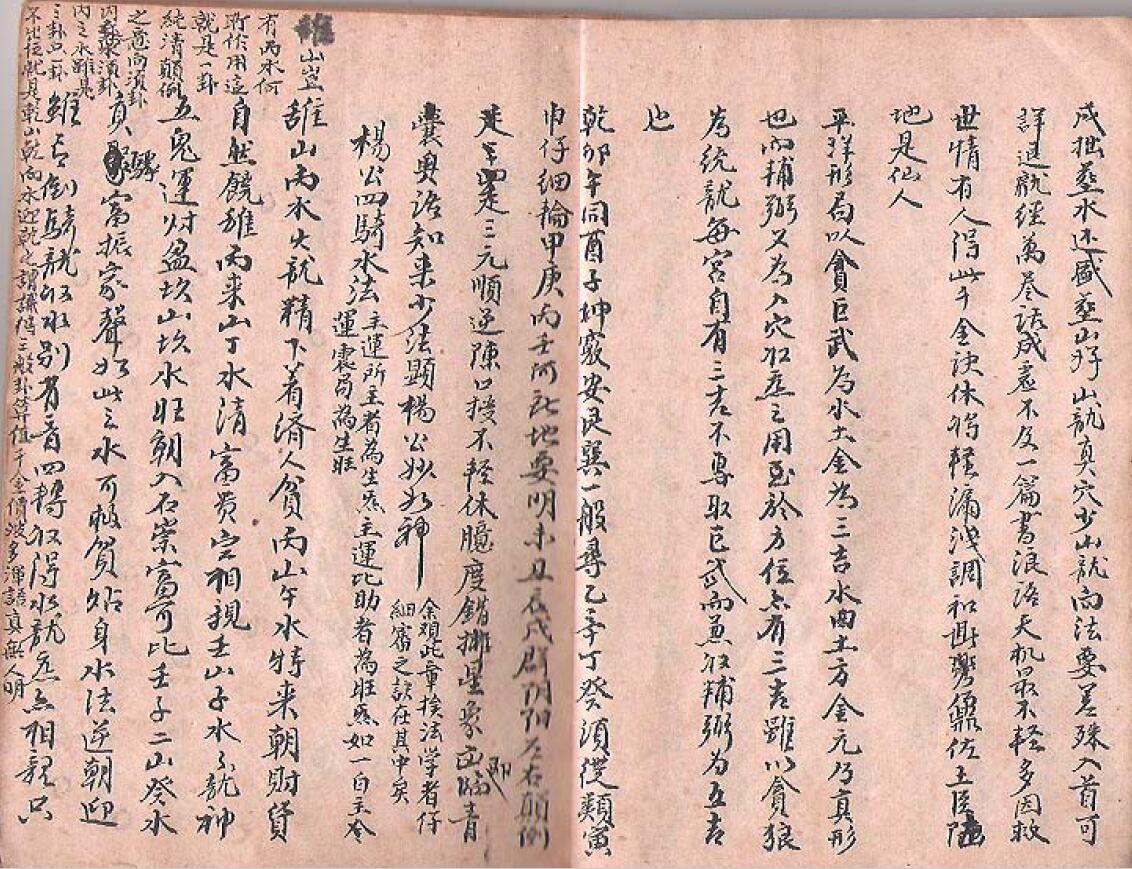 成拙蓥水还盛蓥山好山龍真穴少山龍向法要差殊入首可
詳退龍經萬卷法成裹不及一篇書浪洛天机最不軽多因救
世情有人得此千金訣休将軽漏洩調和燮鼎佐王侯陸
地是仙人
平球形局以貪巨武為水土金為三吉水曲土方金元乃真形
也而輔弼又為入穴收應之用至於方位亦有三吉雖以貪狼
為統龍每宮自有三吉不專取巨武而兼收輔弼為五吉
也
乾卯午同酉子坤家安艮巽一般尋乙辛丁癸須從類寅
申仔細輪甲庚丙壬何所地要明未丑辰戌辟阴阳左右顛倒
走三元順逆陳口授不軽休臆度錯擁星象即青
囊奥語知来少法顯楊公妙如神
余頌此章挨法学者仔
細審之訣在其中矣
楊公四騎水法
主運所主者為生炁主運比助者為旺炁如一白主令
運震局為生旺
離山丙水火龍精下着済人貧丙山午水特来朝財貨
自然饒雖丙来山丁水清富貴定相親壬山子水分龍神
五鬼運財盈坎山坎水旺朝入石崇富可比壬子二山癸水
真驟富振家聲如此之水可救貧站身水法逆朝迎
雖言倒騎龍收水别有音四轉收得水龍炁点相親只
離山豈
有丙水何
所作用這
就是一卦
純清顛倒
之意而須卦
内
内之水雖是
三卦只一卦
不出位就是乾山乾向水迎乾之謂識得三般卦算值千金價波多渾語真無人明